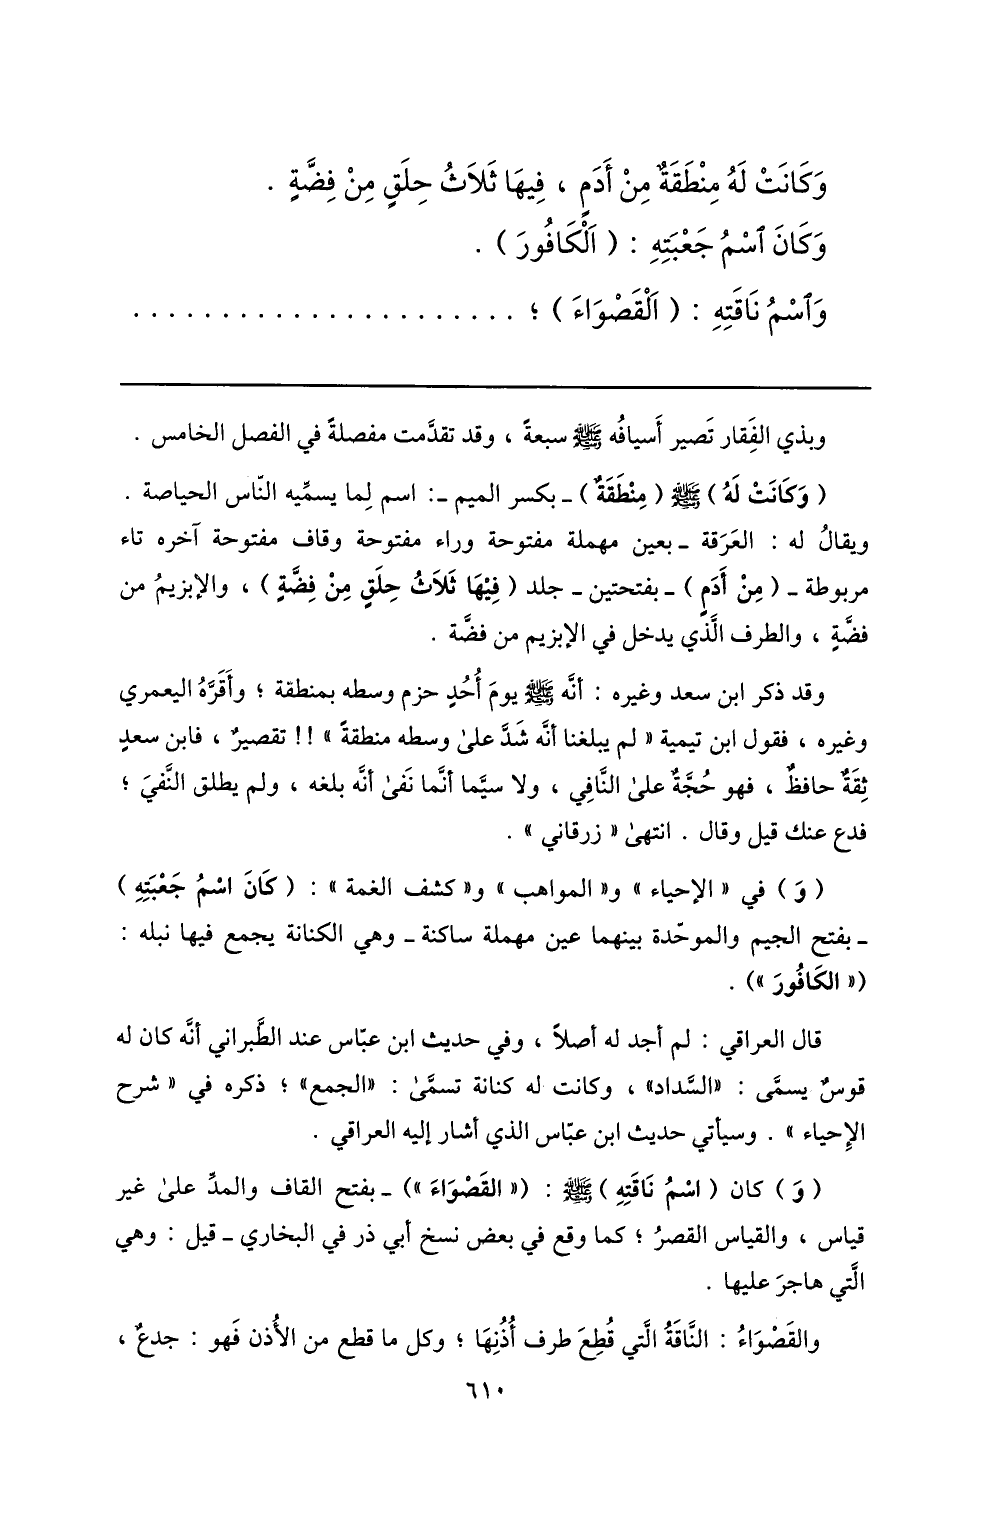 وَكَانَتْ لَهُ مِنْطَقَةٌ مِنْ أَدَمٍ ، فِيهَا ثَلاَثُ حِلَقٍ مِنْ فِضَّةٍ .
وَكَانَ ٱسْمُ جَعْبَتِهِ : ( اَلْكَافُورَ ) .
وَٱسْمُ نَاقَتِهِ : ( اَلْقَصْوَاءَ ) ؛ . . . . . . . . . . . . . . . . . . . . . .
وبذي الفِقَار تَصير أَسيافُه ﷺ سبعةً ، وقد تقدَّمت مفصلةً في الفصل الخامس .
( وَكَانَتْ لَهُ ) ﷺ ( مِنْطَقَةٌ ) ـ بكسر الميم ـ: اسم لِما يسمِّيه النّاس الحياصة .
ويقالُ له : العَرَقة ـ بعين مهملة مفتوحة وراء مفتوحة وقاف مفتوحة آخره تاء
مربوطة ـ ( مِنْ أَدَمٍ ) ـ بفتحتين ـ جلد ( فِيْهَا ثَلاَثُ حِلَقٍ مِنْ فِضَّةٍ ) ، والإبزيمُ من
فضَّةٍ ، والطرف الَّذي يدخل في الإبزيم من فضَّة .
وقد ذكر ابن سعد وغيره : أنَّه ﷺ يومَ أُحُدٍ حزم وسطه بمنطقة ؛ وأَقَرَّهُ اليعمري
وغيره ، فقول ابن تيمية « لم يبلغنا أنَّه شَدَّ علىٰ وسطه منطقةً » !! تقصيرٌ ، فابن سعدٍ
ثِقَةٌ حافظٌ ، فهو حُجَّةٌ علىٰ النَّافِي ، ولا سيَّما أنَّما نَفىٰ أنَّه بلغه ، ولم يطلق النَّفيَ ؛
فدع عنك قيل وقال . انتهىٰ « زرقاني » .
( وَ ) في « الإحياء » و« المواهب » و« كشف الغمة » : ( كَانَ اسْمُ جَعْبَتِهِ )
ـ بفتح الجيم والموحّدة بينهما عين مهملة ساكنة ـ وهي الكنانة يجمع فيها نبله :
(« الكَافُورَ ») .
قال العراقي : لم أجد له أصلاً ، وفي حديث ابن عبّاس عند الطَّبراني أنَّه كان له
قوسٌ يسمَّى : «السَّداد» ، وكانت له كنانة تسمَّىٰ : «الجمع» ؛ ذكره في « شرح
الإِحياء » . وسيأتي حديث ابن عبّاس الذي أشار إليه العراقي .
( وَ ) كان ( اسْمُ نَاقَتِهِ ) ﷺ : (« القَصْوَاءَ ») ـ بفتح القاف والمدِّ علىٰ غير
قياس ، والقياس القصرُ ؛ كما وقع في بعض نسخ أبي ذر في البخاري ـ قيل : وهي
الَّتي هاجرَ عليها .
والقَصْوَاءُ : النَّاقَةُ الَّتي قُطِعَ طرف أُذُنِهَا ؛ وكل ما قطع من الأُذن فَهو : جدعٌ ،
٦١٠